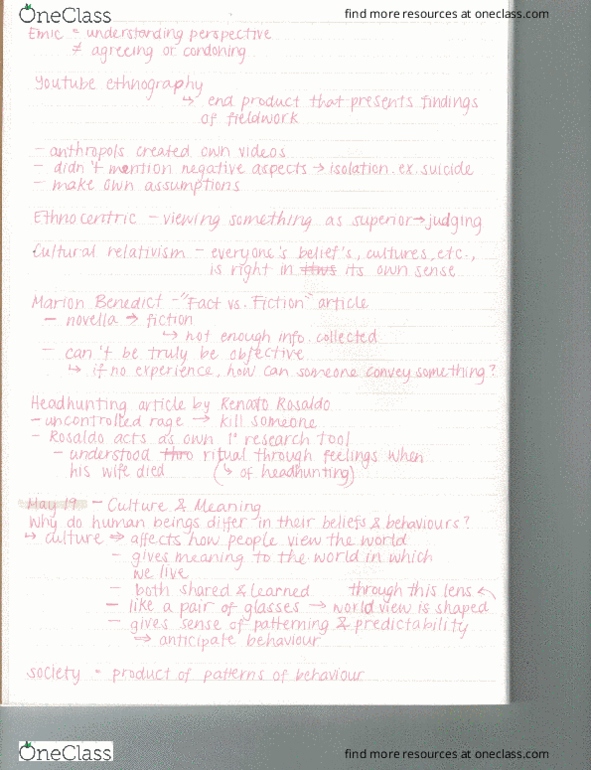 OneClass
find more resources at oneclass.com
Emic = understanding perspective
≠ agreeing or condoning
Youtube ethnography
↳ end product that presents findings
of fieldwork
- anthropols created own videos
- didn't mention negative aspects → isolation. ex. suicide
- make own assumptions
Ethnocentric - viewing something as superior → judging
Cultural relativism - everyone's belief's, cultures, etc.,
is right in its own sense
Marion Benedict - "Fact vs. Fiction" article
- novella → fiction
↳ not enough info. collected
- can't be truly be objective
↳ if no experience, how can someone convey something?
Headhunting article by Renato Rosaldo
- uncontrolled rage → kill someone
- Rosaldo acts as own 1° research tool
- understood thro ritual through feelings when
his wife died (↳ of headhunting)
May 19 - Culture & Meaning
Why do human beings differ in their beliefs & behaviours?
↳ culture ⇒ affects how people view the world
- gives meaning to the world in which
we live
- both shared & learned through this lens ↶
- like a pair of glasses → world view is shaped
- gives sense of patterning & predictability
⇒ anticipate behaviour
society = product of patterns of behaviour
OneClass
find more resources at oneclass.com